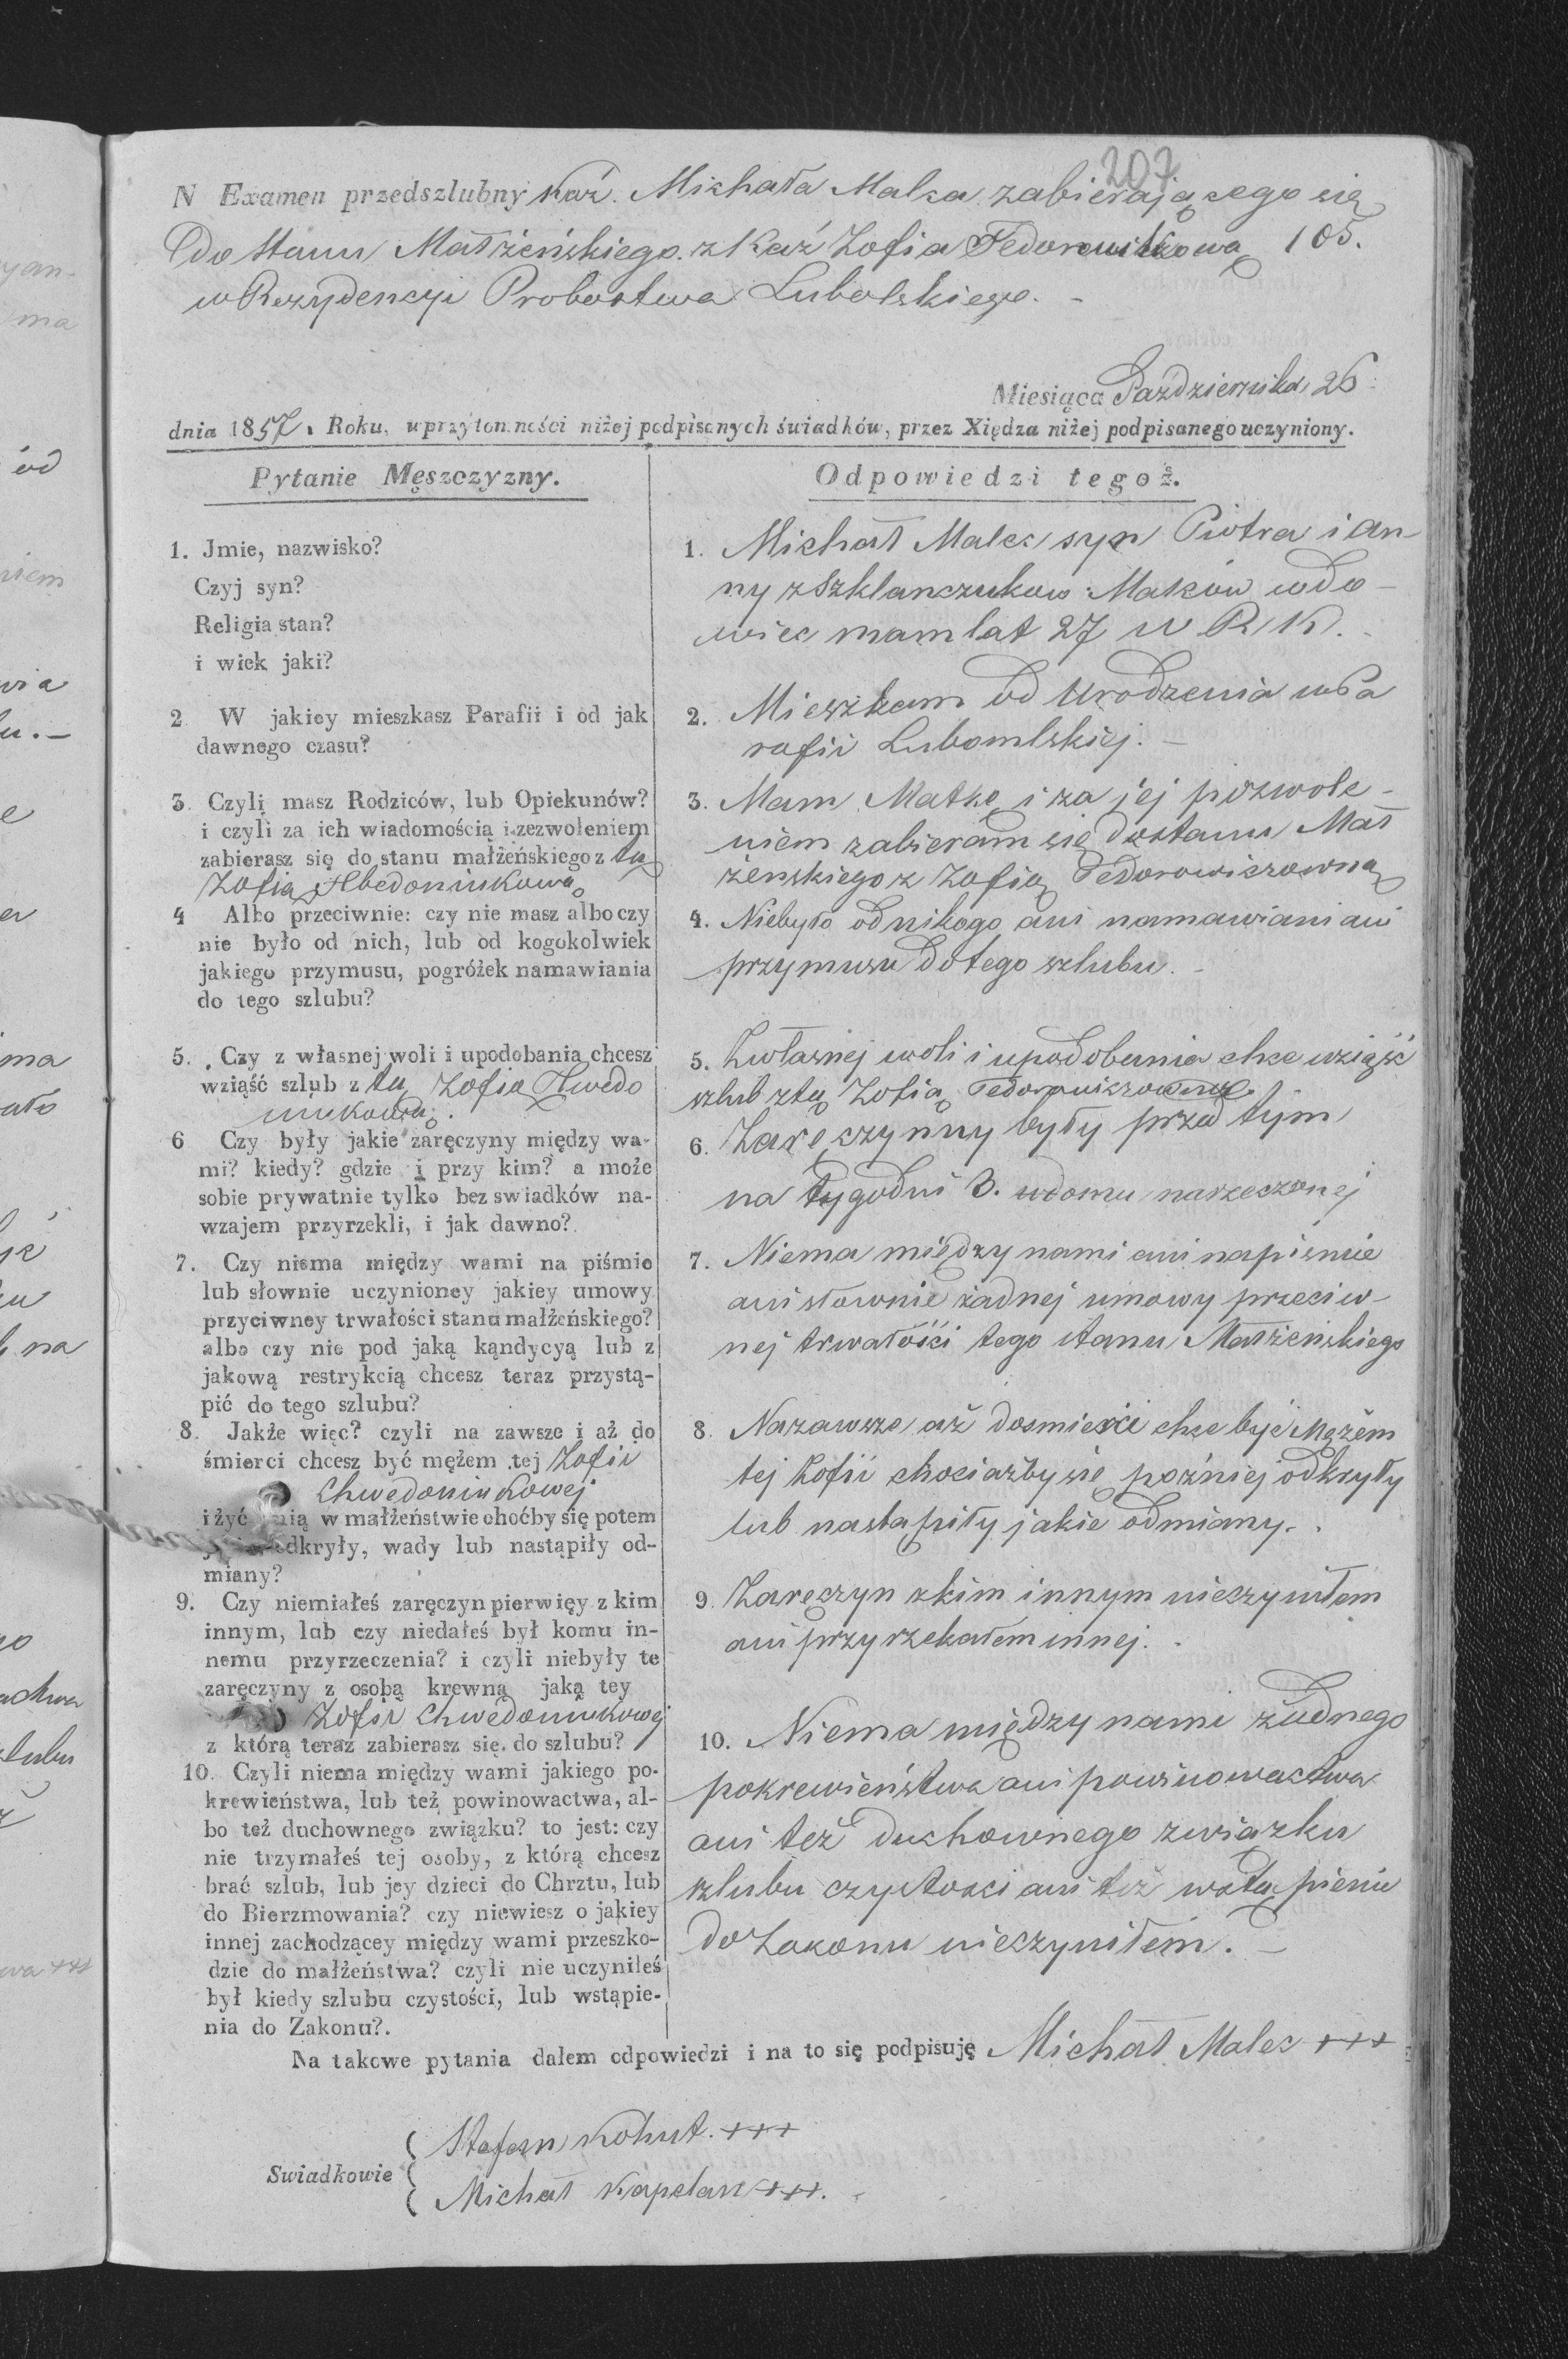 207
N Examen przedszlubny kaź. Michała Malca zabierającego się
do stanu Małżeńskiego z Kaź Zofia Fedorowiczowa 105.
w Rezydencyi Probostwa Lubolskiego. -
Miesiąca Października 26
dnia 1857. Roku, w przytomności niżej podpisanych świadków, przez Xiędza niżej podpisanego uczyniony.
Pytanie Męszczyzny.
1. Jmie, nazwisko?
Czyj syn?
Religia stan?
i wiek jaki?
2 W jakiey mieszkasz Parafii i od jak
dawnego czasu?
3. Czyli masz Rodziców, lub Opiekunów?
i czyli za ich wiadomością i zezwoleniem
zabierasz się do stanu małżeńskiego z tą
Zofią
4 Albo przeciwnie: czy nie masz albo czy
nie było od nich, lub od kogokolwiek
jakiego przymusu, pogróżek namawiania
do tego szlubu?
5. Czy z własnej woli i upodobania chcesz
wziąść szlub z tą Zofią Hwedo
niukową.
6 Czy były jakie zaręczyny między wa-
mi? kiedy? gdzie i przy kim? a może
sobie prywatnie tylko bez swiadków na-
wzajem przyrzekli, i jak dawno?
7. Czy niema między wami na piśmie
lub słownie uczynioney jakiey umowy
przyciwney trwałości stanu małżeńskiego?
albo czy nie pod jaką kądycyą lub z
jakową restrykcią chcesz teraz przystą-
pić do tego szlubu?
8. Jakże więc? czyli na zawsze i aż do
śmierci chcesz być mężem tej Zofii
Chwedoniukowej
i żyć nią w małżeństwie choćby się potem
odkryły, wady lub nastąpiły od-
miany?
9. Czy niemiałeś zaręczyn pierwięy z kim
innym, lub czy niedałeś był komu in-
nemu przyrzeczenia? i czyli niebyły te
zaręczyny z osobą krewną jaką tey
Zofii Chwedoniukowej
z którą teraz zabierasz się do szlubu?
10. Czyli niema między wami jakiego po-
krewieństwa, lub też powinowactwa, al-
bo też duchownego związku? to jest: czy
nie trzymałeś tej osoby, z którą chcesz
brać szlub, lub jey dzieci do Chrztu, lub
do Bierzmowania? czy niewiesz o jakiey
innej zachodzącey między wami przeszko-
dzie do małżeństwa? czyli nie uczyniłeś
był kiedy szlubu czystości, lub wstąpie-
nia do Zakonu?.
Odpowiedzi tegoż.
1. Michał Malec syn Piotra i An-
ny z Szklanczukow Malców wdo-
wiec mam lat 27 w R K.
2. Mieszkam od Urodzenia w Pa
rafii Lubomlskiej. -
3. Mam Matkę i za jej pozwole-
niem zabieram się do stanu Mał
żenskiego z Zofią Fedorowiczowną
4. Niebyło od nikogo ani namawiani ani
przymusu do tego szlubu. -
5. Z własnej woli i upodobania chce wziąść
szlub z tą Zofią Fedorowiczowną
6. Zaręczynny były przed tym
na tygodni 3. w domu narzeczonej
7. Niema między nami ani na piśmie
ani słownie żadnej umowy przeciw-
nej trwałości tego stanu Małżeńskiego
8. Nazawsze aż dosmierci chce być Mężem
tej Zofii chociażby się pożniej odkryły
lub nastąpiły jakie odmiany. .
9. Zaręczyn z kim innym nieczyniłem
ani przyrzekałem innej. .
10. Niema między nami żadnego
pokrewieństwa ani powinowactwa
ani też duchownego związku
szlubu czystosci ani też wstąpienia
do Zakonu nieczyniłem. -
Na takowe pytania dałem odpowiedzi i na to się podpisuję Michał Malec +++
Swiadkowie
Stefan Kohut. +++
Michał Kapelan +++.